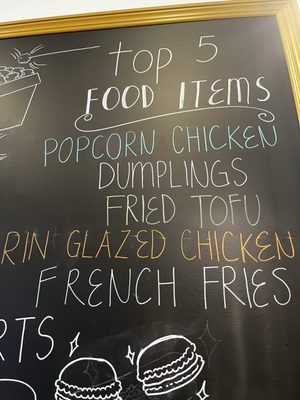 top 5
FOOD ITEMS
POPCORN CHICKEN
DUMPLINGS
FRIED TOFU
RIN GLAZED CHICKEN
FRENCH FRIES
RTS